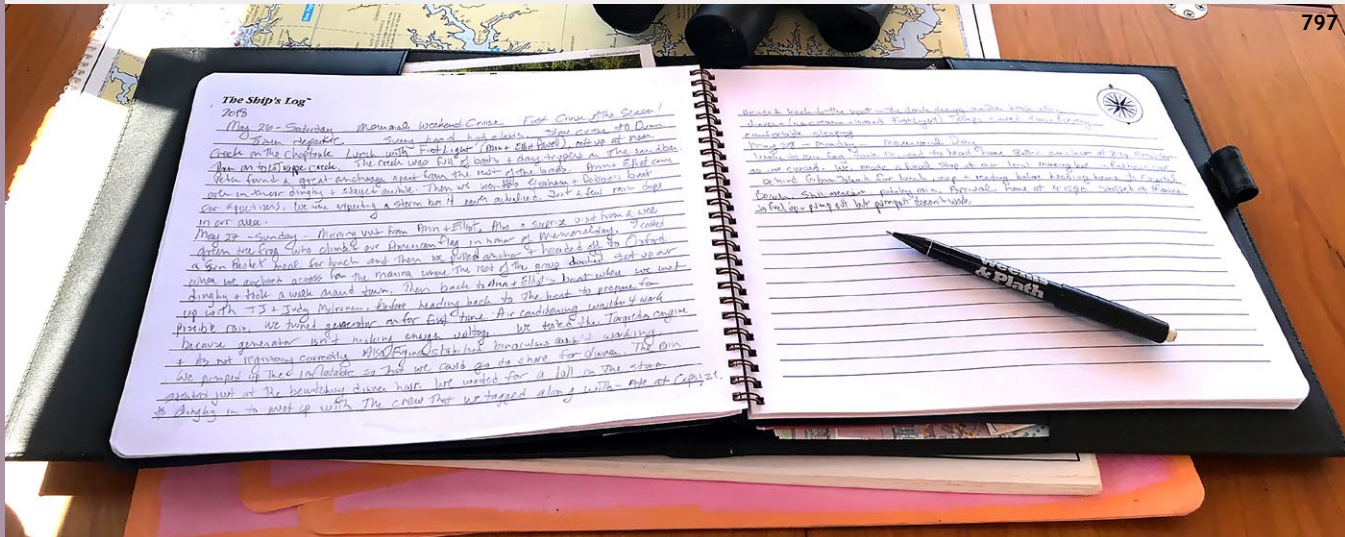 797
The Ship's Log™
2018
May 26 - Saturday Memorial Weekend Cruise First Cruise of the Season!
departure Sunny hazy clouds. Slow cruise to Dunn
Creek on the Choptank Lunch with First Light (Ann + Elliot Powell), raft up at noon
The creek was full of boats + day trippers on the sandbar.
found a great anchorage apart from the rest of the boats. Ann + Elliot came
over in their dinghy + stayed awhile. Then we went to Graham + Debbie's boat
for appetizers. We were expecting a storm but it never actualized. Just a few rain drops
in our area.
May 27 - Sunday - Morning visit from Ann + Elliot, Also a suprise visit from a wee
green tree frog who climbed our American flag in honor of Memorial day. I cooked
a Sun Basket meal for lunch and then we pulled anchor + headed off to Oxford
where we anchored across from the marina where the rest of the group docked. Set up our
dinghy + took a walk around town. Then back to Ann + Elliot's boat where we met
up with TJ + Judy Before heading back to the boat to prepare for
possible rain, we turned generator on for first time. Air conditioning wouldn't work
because generator isn't making enough voltage. We tested the Torqeedo engine
+ its not registering correctly. Also, Fujinon stabilized binoculars aren't working
We pumped up the inflatable so that we could go to shore for dinner. The rain
started just at the bewitching dinner hour. We waited for a lull in the storm
to dinghy in to meet up with the crew that we tagged along with - Ate at Capsize.
back to the boat in the dark
dinner (ice cream - aboard First Light) Temps cooled down for very
comfortable sleeping
May 28 - Monday - Memorial Day
Woke to fog, decided to head home. Pulled anchor at
as we cruised. We made
behind Gibson Island for lunch, nap + reading before heading home to
Still overcast, patchy rain. Arrival home at Stopped at Marina
to fuel up + pump out but pumpout doesn't work.
Weems
& Plath